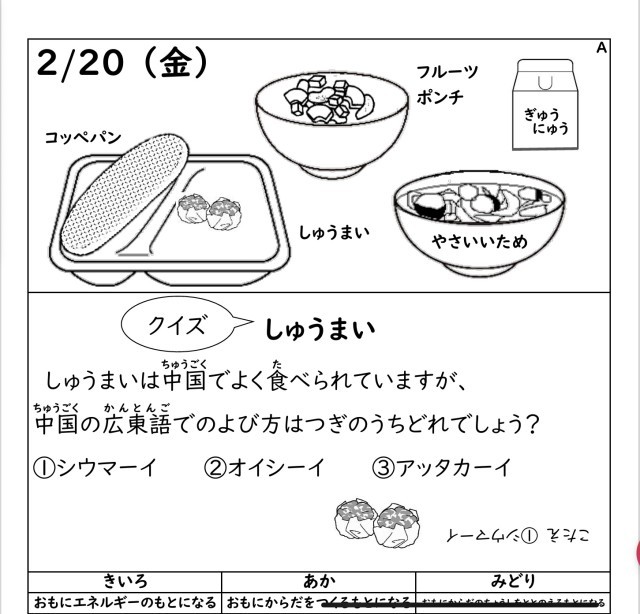 A
2/20（金）
フルーツ
ポンチ
ぎゅう
にゅう
コッペパン
しゅうまい
やさいいため
クイズ
しゅうまい
しゅうまいは中国でよく食べられていますが、
ちゅうごく
た
中国の広東語でのよび方はつぎのうちどれでしょう？
ちゅうごく
かんとんご
①シウマーイ ②オイシーイ ③アッタカーイ
こたえ ①シウマーイ
きいろ あか みどり
おもにエネルギーのもとになる おもにからだをつくるもとになる おもにからだのちょうしをととのえるもとになる